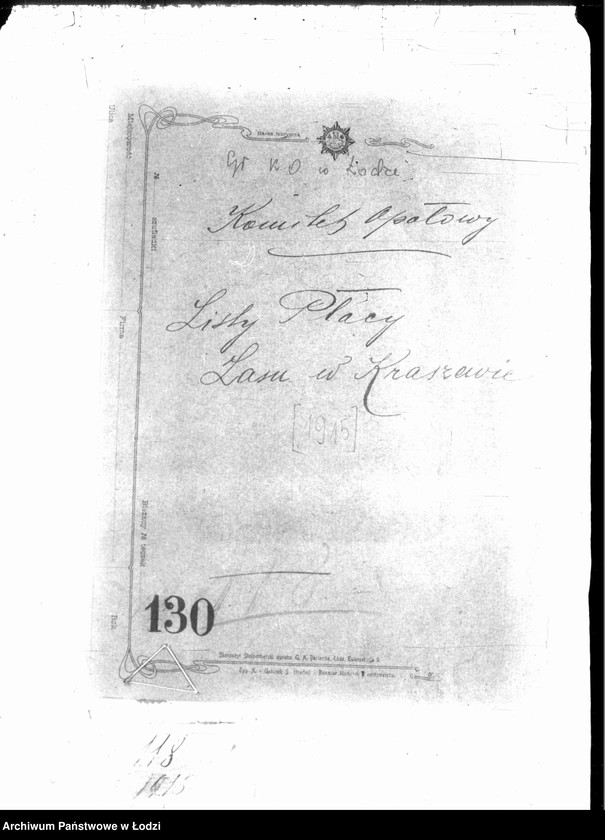 Marka fabryczna
Gł K O w Łodzi.
Komitet Opałowy
Listy Płacy
Lasu w Kraszewie
[1915]
130
118
1915
Ulica
Miejscowość
№
Firma
Rok
Archiwum Państwowe w Łodzi